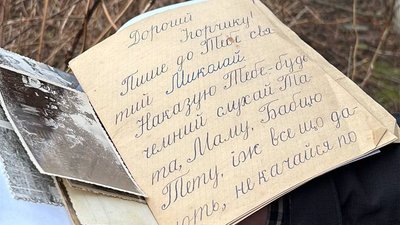 Дорогий Юрчику!
Пише до Тебе свя
тий Миколай
Наказую Тебе-будь
чемний слухай Та
та, Маму, Бабцю
Тету, їж все що да-
ють, не качайся по